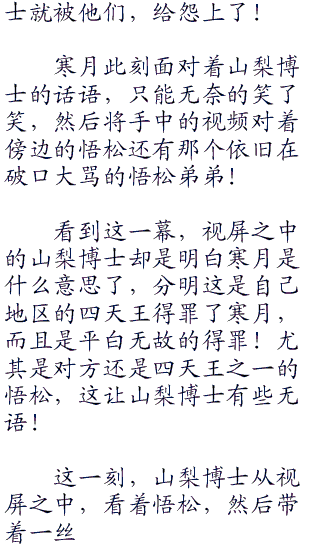 士就被他们，给怨上了！
寒月此刻面对着山梨博
士的话语，只能无奈的笑了
笑，然后将手中的视频对着
傍边的悟松还有那个依旧在
破口大骂的悟松弟弟！
看到这一幕，视屏之中
的山梨博士却是明白寒月是
什么意思了，分明这是自己
地区的四天王得罪了寒月，
而且是平白无故的得罪！尤
其是对方还是四天王之一的
悟松，这让山梨博士有些无
语！
这一刻，山梨博士从视
屏之中，看着悟松，然后带
着一丝